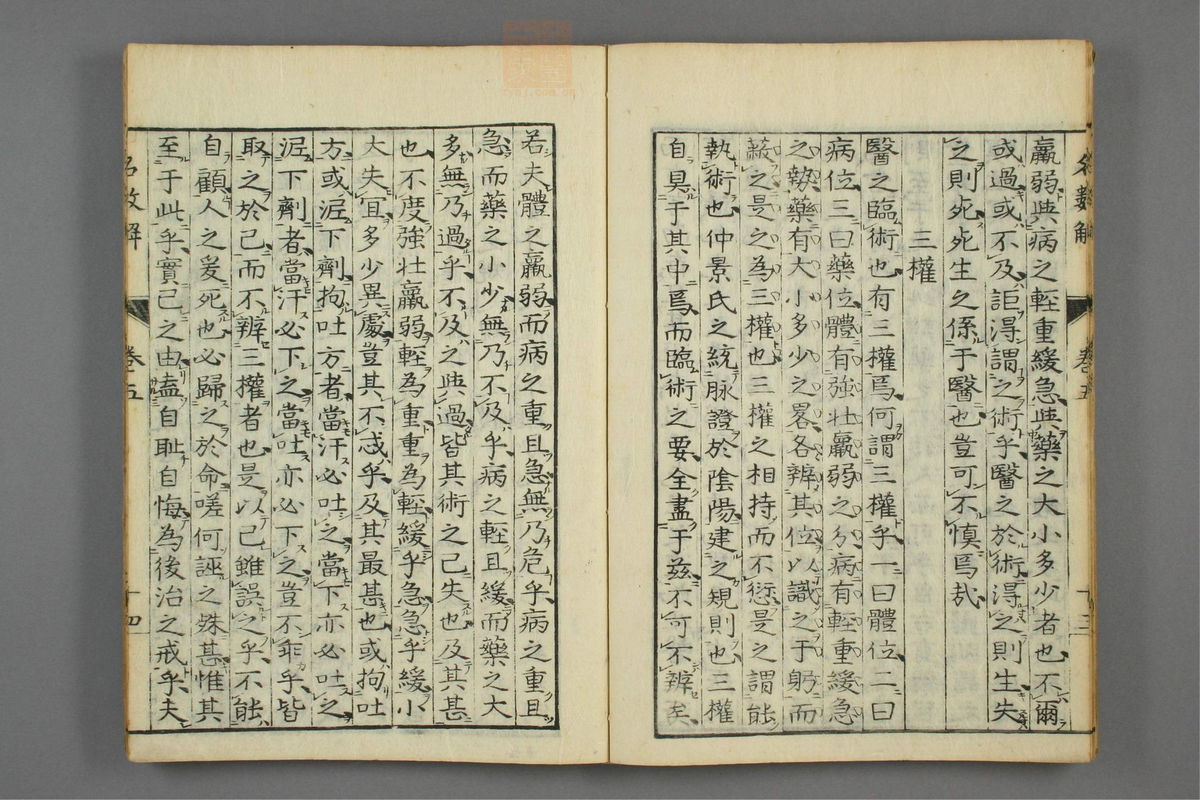 名數解 卷五 十三
羸弱與病之輕重緩急與藥之大小多少者也不爾
或過或不及詎得謂之術乎醫之於術得之則生失
之則死死生之係于醫也豈可不慎焉哉
三權
醫之臨術也有三權焉何謂三權乎一曰體位二曰
病位三曰藥位體有強壯羸弱之分病有輕重緩急
之執藥有大小多少之畧各辨其位以識之于躬而
蔽之是之為三權也三權之相持而不愆是之謂能
執術也仲景氏之統脉證於陰陽建之規則也三權
自具于其中焉而臨術之要全盡于茲不可不辨矣
若夫體之羸弱而病之重且急無乃危乎病之重且
急而藥之小少無乃不及乎病之輕且緩而藥之大
多無乃過乎不及之與過皆其術之己失也及其甚
也不度強壯羸弱輕為重重為輕緩乎急急乎緩小
大失宜多少異處豈其不惑乎及其最甚也或拘吐
方或泥下劑拘吐方者當汗必吐之當下亦必吐之
泥下劑者當汗必下之當吐亦必下之豈不乖乎皆
取之於己而不辨三權者也是以己雖誤之乎不能
自顧人之爰死也必歸之於命嗟何誣之殊甚惟其
至于此乎實己之由盍自耻自悔為後治之戒乎夫
名數解 卷五 十四